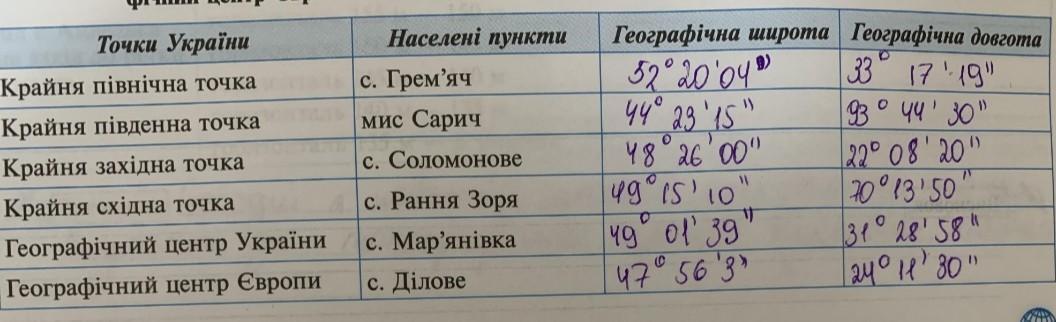 Точки України Населені пункти Географічна широта Географічна довгота
Крайня північна точка с. Грем’яч 52° 20' 04" 33° 17' 19"
Крайня південна точка мис Сарич 44° 23' 15" 93° 44' 30"
Крайня західна точка с. Соломонове 48° 26' 00" 22° 08' 20"
Крайня східна точка с. Рання Зоря 49° 15' 10" 70° 13' 50"
Географічний центр України с. Мар’янівка 49° 01' 39" 31° 28' 58"
Географічний центр Європи с. Ділове 47° 56' 3" 24° 11' 30"